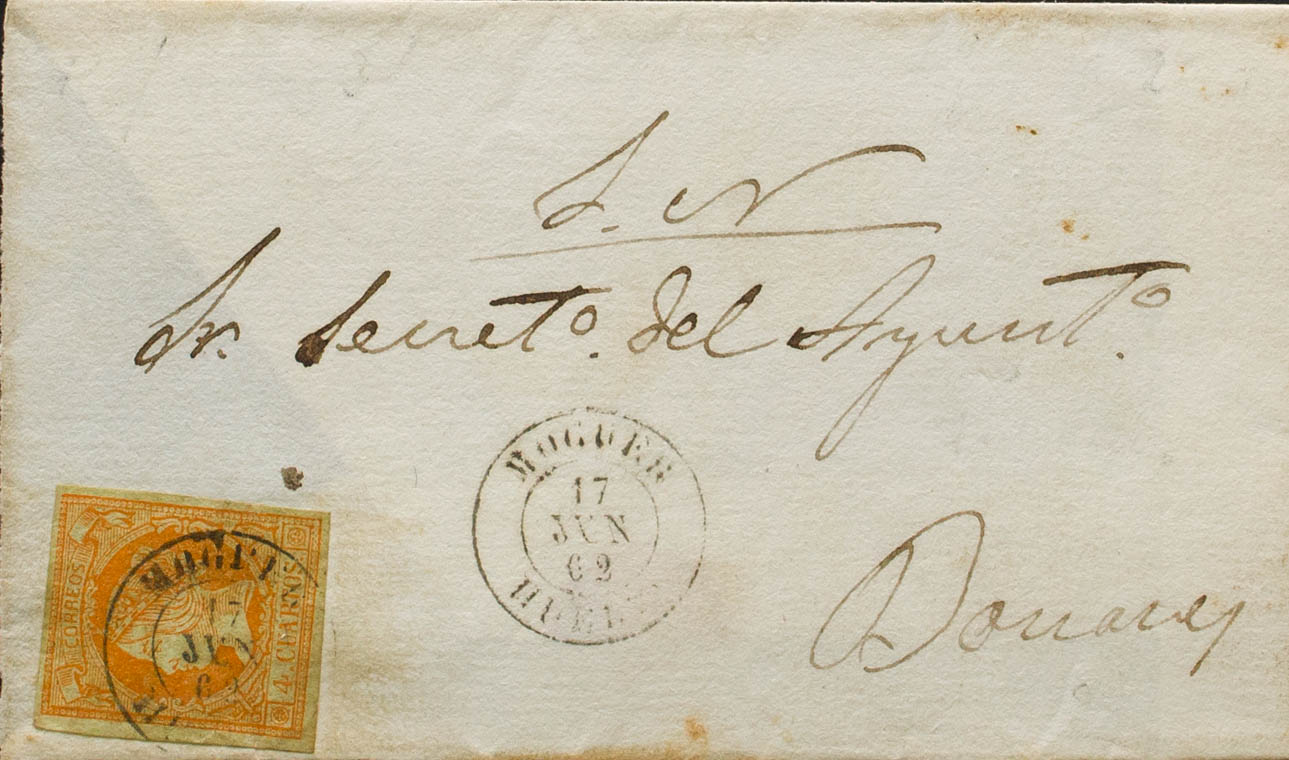 S. N
Sr. Secret.º del Ayunt.º
MOGUER
17
JUN
62
HUEL
Bonares
CORREOS
4 CUARTOS
MOGUE
17
JUN
62
H